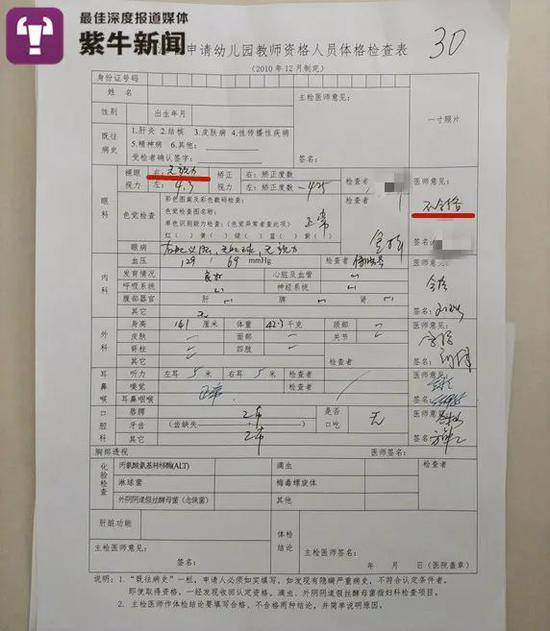 最佳深度报道媒体
紫牛新闻
申请幼儿园教师资格人员体格检查表
30
(2010年12月制定)
身份证号码
姓名
主检医师意见:
一寸照片
性别
出生年月
既往病史
1.肝炎 2.结核 3.皮肤病 4.性传播性疾病
5.精神病 6.其他:
受检者确认签字:
签名:
眼科
裸眼视力
右:无视力
左:4.3
矫正视力
右:矫正度数
左:矫正度数
检查者
医师意见:
不合格
色觉检查
彩色图案及彩色数码检查:
色觉检查图名称:
单色识别能力检查:(色觉异常者查此项)
红( ) 黄( ) 绿( ) 蓝( ) 紫( )
正常
检查者
签名:
眼病
内科
血压
129 / 69 mmHg
检查者
医师意见:
合格
发育情况
良好
心脏及血管
呼吸系统
神经系统
腹部器官
肝
脾
肾
其它
无
签名:
外科
身高
161 厘米
体重
千克
颈部
医师意见:
皮肤
面部
关节
脊柱
四肢
其它
检查者
签名:
耳鼻喉
听力
左耳 5 米
右耳 5 米
检查者
医师意见:
嗅觉
正常
耳鼻咽喉
签名:
口腔科
唇腭
正常
是否口吃
无
医师意见:
牙齿
(齿缺失
正常
签名:
胸部透视
医师签名:
化验检查
丙氨酸氨基转移酶(ALT)
滴虫
检查者
淋球菌
梅毒螺旋体
外阴阴道假丝酵母菌(念珠菌)
其他
肝脏功能
主检医师意见:
签名:
体检结论
主检医师签名:
年 月 日(医院盖章)
说明:1.“既往病史”一栏,申请人必须如实填写,如发现有隐瞒严重病史,不符合认定条件者,
即使取得资格,一经发现收回认定资格。滴虫、外阴阴道假丝酵母菌指妇科检查项目。
2.主检医师作体检结论要填写合格、不合格两种结论,并简单说明原因。